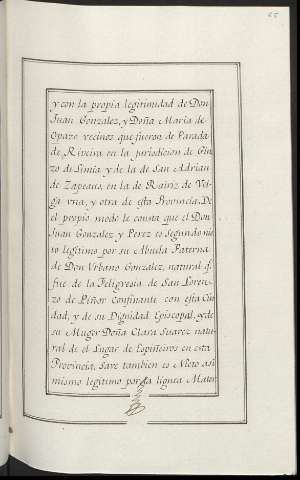 65
y con la propia legitimidad de Don
Juan Gonzalez, y Doña Maria de
Opazo vecinos que fueron de Parada
de Riveira en la jurisdicion de Gin
zo de Limia y de la de San Adrian
de Zapeaus, en la de Rairiz de Vei
ga una, y otra de esta Provincia. De
el propio modo le consta que el Don
Juan Gonzalez y Perez es Segundo nie
to legitimo por su Abuela Paterna
de Don Vrbano Gonzalez, natural q.
fue de la Feligresia de San Loren
zo de Piñor Confinante con esta Ciu
dad, y de su Dignidad Episcopal, y de
su Muger Doña Clara Suarez natu
ral de el Lugar de Espiñeiros en esta
Provincia. Save tambien es Nieto asi
mismo legitimo por la lignea Mater